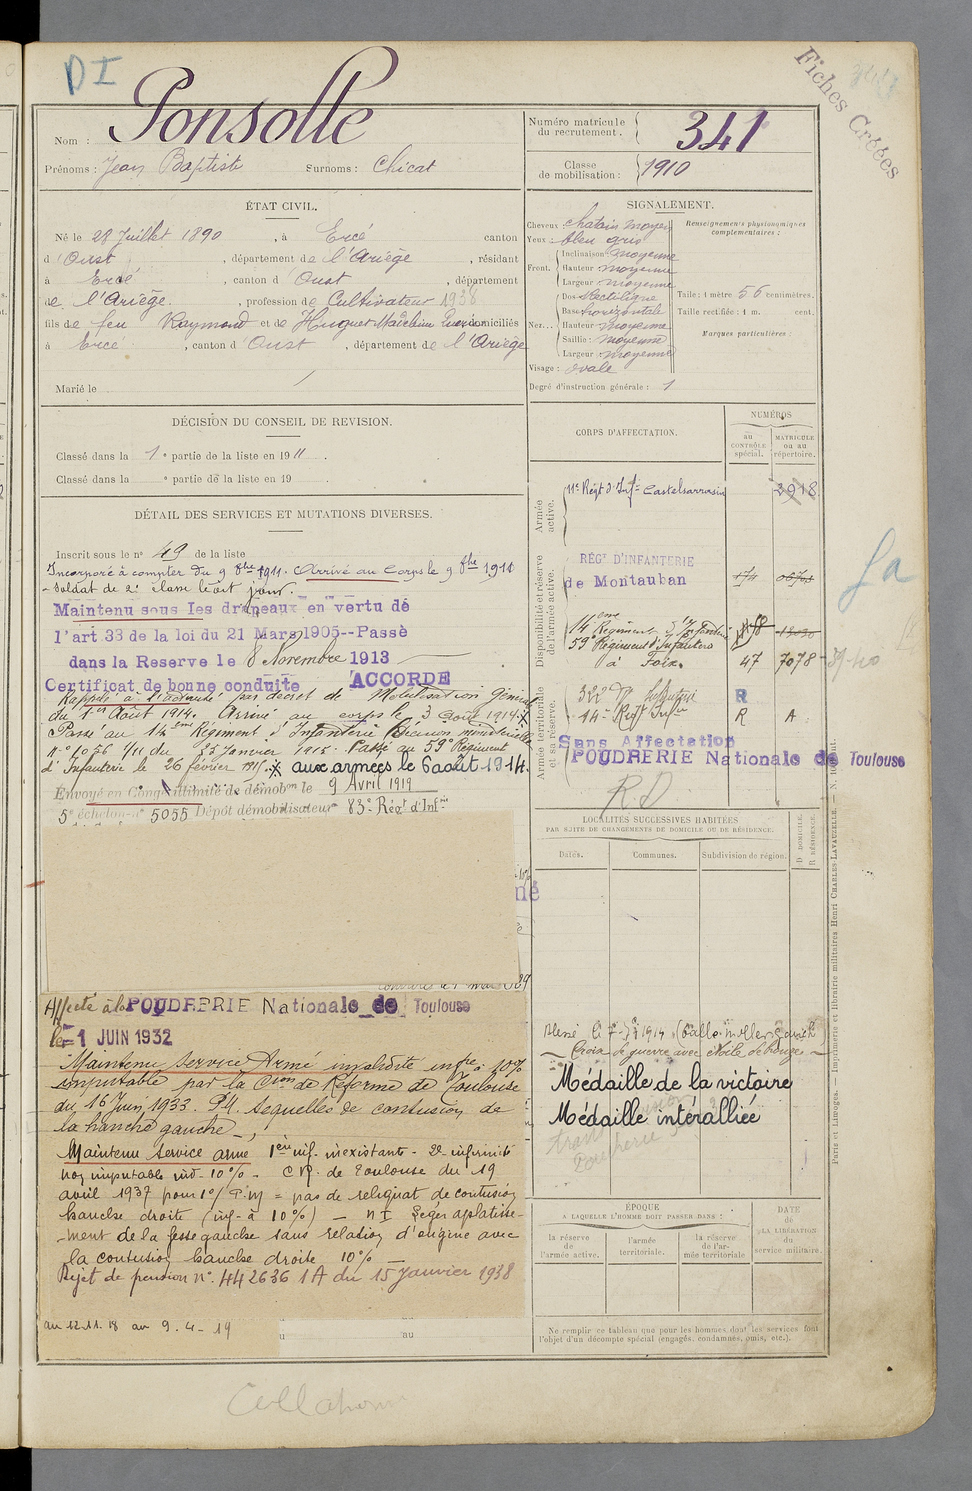 DI
Fiches Créées
Nom : Ponsolle
Prénoms : Jean Baptiste Surnoms : Chicat
Numéro matricule du recrutement. 341
Classe de mobilisation : 1910
ÉTAT CIVIL.
Né le 28 Juillet 1890, à Ercé canton
d'Oust, département de l'Ariège, résidant
à Ercé, canton d'Oust, département
de l'Ariège, profession de Cultivateur 1938
fils de feu Raymond et de Huguet domiciliés
à Ercé, canton d'Oust, département de l'Ariège
Marié le
SIGNALEMENT.
Cheveux : chatain moyen
Yeux : bleu gris
Front. Inclinaison : moyenne
Hauteur : moyenne
Largeur : moyenne
Nez... Dos : Rectiligne
Base : horizontale
Hauteur : moyenne
Saillie : moyenne
Largeur : moyenne
Visage : ovale
Degré d'instruction générale : 1
Renseignements physionomiques complémentaires :
Taille : 1 mètre 56 centimètres.
Taille rectifiée : 1 m. cent.
Marques particulières :
DÉCISION DU CONSEIL DE REVISION.
Classé dans la 1e partie de la liste en 1911.
Classé dans la e partie de la liste en 19 .
DÉTAIL DES SERVICES ET MUTATIONS DIVERSES.
Inscrit sous le no 49 de la liste
Incorporé à compter du 9 8bre 1911. Arrivé au Corps le 9 8bre 1911
- Soldat de 2e classe le dit jour.
Maintenu sous les drapeaux en vertu de
l'art 33 de la loi du 21 Mars 1905--Passé
dans la Reserve le 8 Novembre 1913
Certificat de bonne conduite ACCORDE
Rappelé à l'activité par décret de Mobilisation Général
du 1er Août 1914. Arrivé au corps le 3 Août 1914.
Passé au 14ème Régiment d'Infanterie Décision ministérielle
no 1056 4/11 du 25 Janvier 1915. Passé au 59e Régiment
d'Infanterie le 26 février 1915. aux armées le 6 août 1914.
Envoyé en Congé illimité de démobon le 9 Avril 1919
5e échelon no 5055 Dépôt démobilisateur 83e Régt d'Infie
Affecté à la POUDRERIE Nationale de Toulouse
le -1 JUIN 1932
Maintenu service Armé invalidité infre à 10%
imputable par la Cion de Réforme de Toulouse
du 16 Juin 1933. P4. Sequelles de contusion de
la hanche gauche
Maintenu Service armé 1ère inf. inexistante - 2e infirmité
non imputable ind. 10% - C.R. de Toulouse du 19
avril 1937 pour 1°/ P.M = pas de reliquat de contusion
hanche droite (inf. à 10%) - N I Léger aplatisse-
-ment de la fesse gauche sans relation d'origine avec
la contusion hanche droite 10%
Rejet de pension no. 442636 1A du 15 Janvier 1938
au 12.11.18 au 9.4-19
au
CORPS D'AFFECTATION.
NUMÉROS
au CONTRÔLE spécial.
MATRICULE ou au répertoire.
Armée active.
11e Régt d'Infie Castelsarrasin 3918
Disponibilité et réserve de l'armée active.
RÉGt D'INFANTERIE
de Montauban
14eme Régiment d'Infanterie
59e Régiment d'Infanterie
à Foix. 47 7078
Armée territoriale et sa réserve.
322e Rt d'Infanterie R
14e Regt Infie R A
Sans Affectation
POUDRERIE Nationale de Toulouse
RD
LOCALITÉS SUCCESSIVES HABITÉES
PAR SUITE DE CHANGEMENTS DE DOMICILE OU DE RÉSIDENCE.
Dates. Communes. Subdivision de région.
D. DOMICILE.
R. RÉSIDENCE.
Croix de guerre avec étoile de bronze
Médaille de la victoire
Médaille intéralliée
ÉPOQUE
A LAQUELLE L'HOMME DOIT PASSER DANS :
la réserve de l'armée active.
l'armée territoriale.
la réserve de l'armée territoriale
DATE de LA LIBÉRATION du service militaire.
Ne remplir ce tableau que pour les hommes dont les services font
l'objet d'un décompte spécial (engagés, condamnés, omis, etc.).
Paris et Limoges. — Imprimerie et librairie militaires Henri CHARLES-LAVAUZELLE.